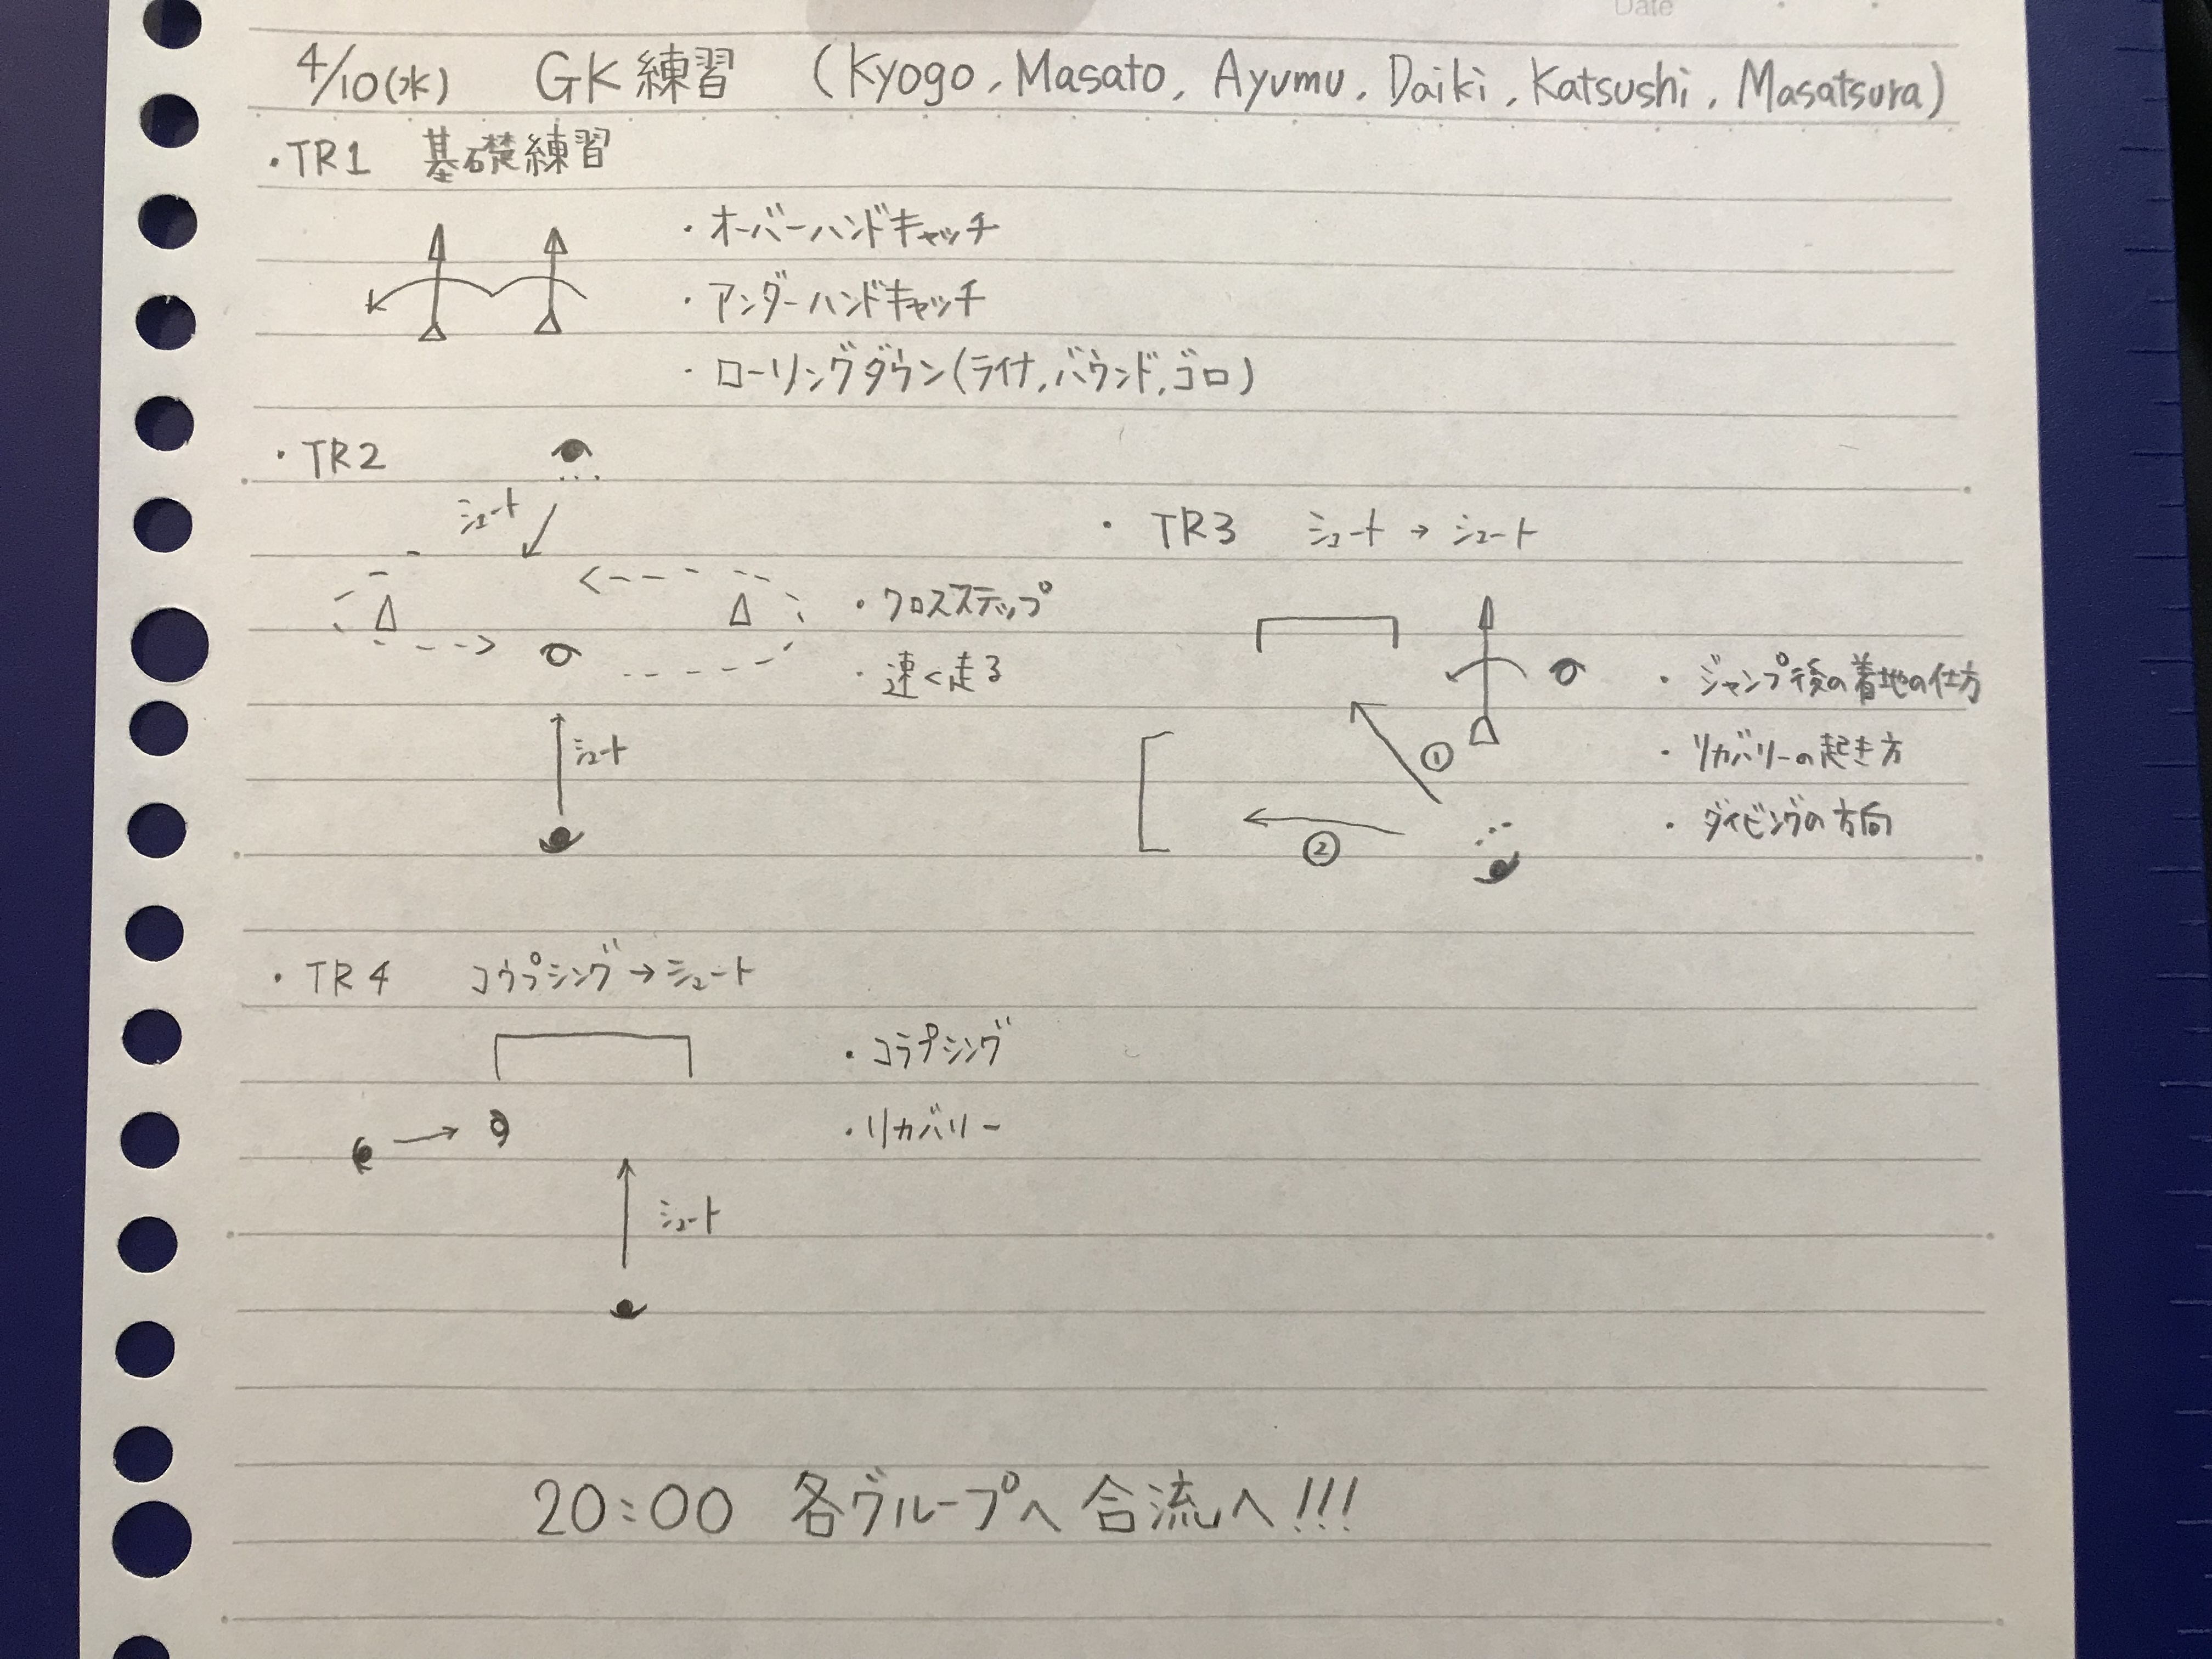 Date
4/10(水) GK練習 (Kyogo, Masato, Ayumu, Daiki, Katsushi, Masatsura)
・TR1 基礎練習
・オーバーハンドキャッチ
・アンダーハンドキャッチ
・ローリングダウン(ライナ,バウンド,ゴロ)
・TR2
シュート
・クロスステップ
・速く走る
シュート
・TR3 シュート→シュート
①
②
・ジャンプ後の着地の仕方
・リカバリーの起き方
・ダイビングの方向
・TR4 コラプシング→シュート
・コラプシング
・リカバリー
シュート
20:00 各グループへ合流へ!!!